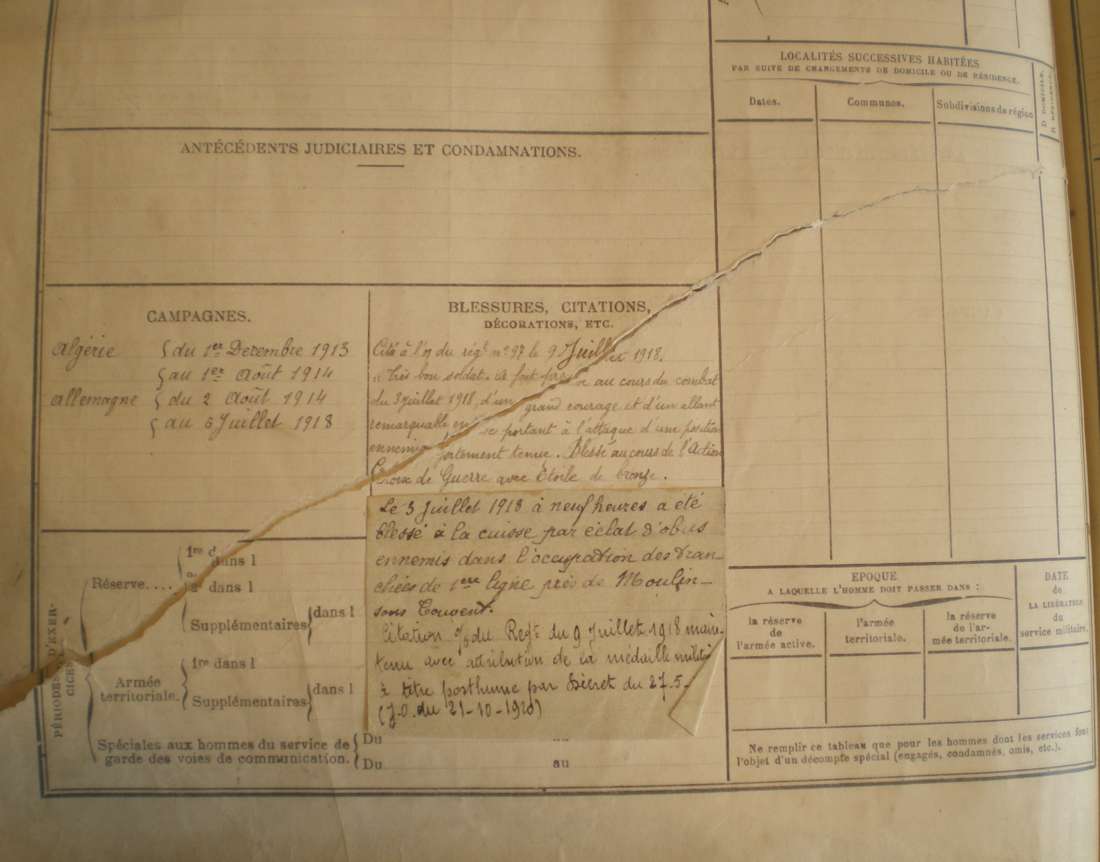 ANTÉCÉDENTS JUDICIAIRES ET CONDAMNATIONS.
CAMPAGNES.
Algérie { du 1er Decembre 1913
{ au 1er Août 1914
Allemagne { du 2 Août 1914
{ au 5 Juillet 1918
BLESSURES, CITATIONS,
DÉCORATIONS, ETC.
Cité à l'o du régt n° 97 le 9 Juillet 1918.
Très bon soldat. a fait au cours du combat
du 3 juillet 1918, d'un grand courage et d'un allant
remarquable en se portant à l'attaque d'une position
ennemie fortement tenue. Blessé au cours de l'action
Croix de Guerre avec Etoile de bronze.
Le 3 Juillet 1918 à neuf heures a été
blessé à la cuisse par éclat d'obus
ennemis dans l'occupation des tran-
chées de 1ère ligne près de Moulin-
sous Touvent.
Citation o/ du Regt du 9 Juillet 1918 main-
tenu avec attribution de la médaille milit
à titre posthume par Décret du 27-5-
(J.O. du 21-10-1920)
PÉRIODES D'EXER-
CICES
Réserve....
1re dans l
dans l
Supplémentaires
dans l
Armée
territoriale.
1re dans l
Supplémentaires
dans l
Spéciales aux hommes du service de
garde des voies de communication.
Du
Du au
LOCALITÉS SUCCESSIVES HABITÉES
PAR SUITE DE CHANGEMENTS DE DOMICILE OU DE RÉSIDENCE.
Dates.
Communes.
Subdivisions de région
D. DOMICILE.
R. RÉSIDENCE.
EPOQUE
A LAQUELLE L'HOMME DOIT PASSER DANS :
la réserve
de
l'armée active.
l'armée
territoriale.
la réserve
de l'ar-
mée territoriale.
DATE
de
LA LIBÉRATION
du
service militaire.
Ne remplir ce tableau que pour les hommes dont les services font
l'objet d'un décompte spécial (engagés, condamnés, omis, etc.).